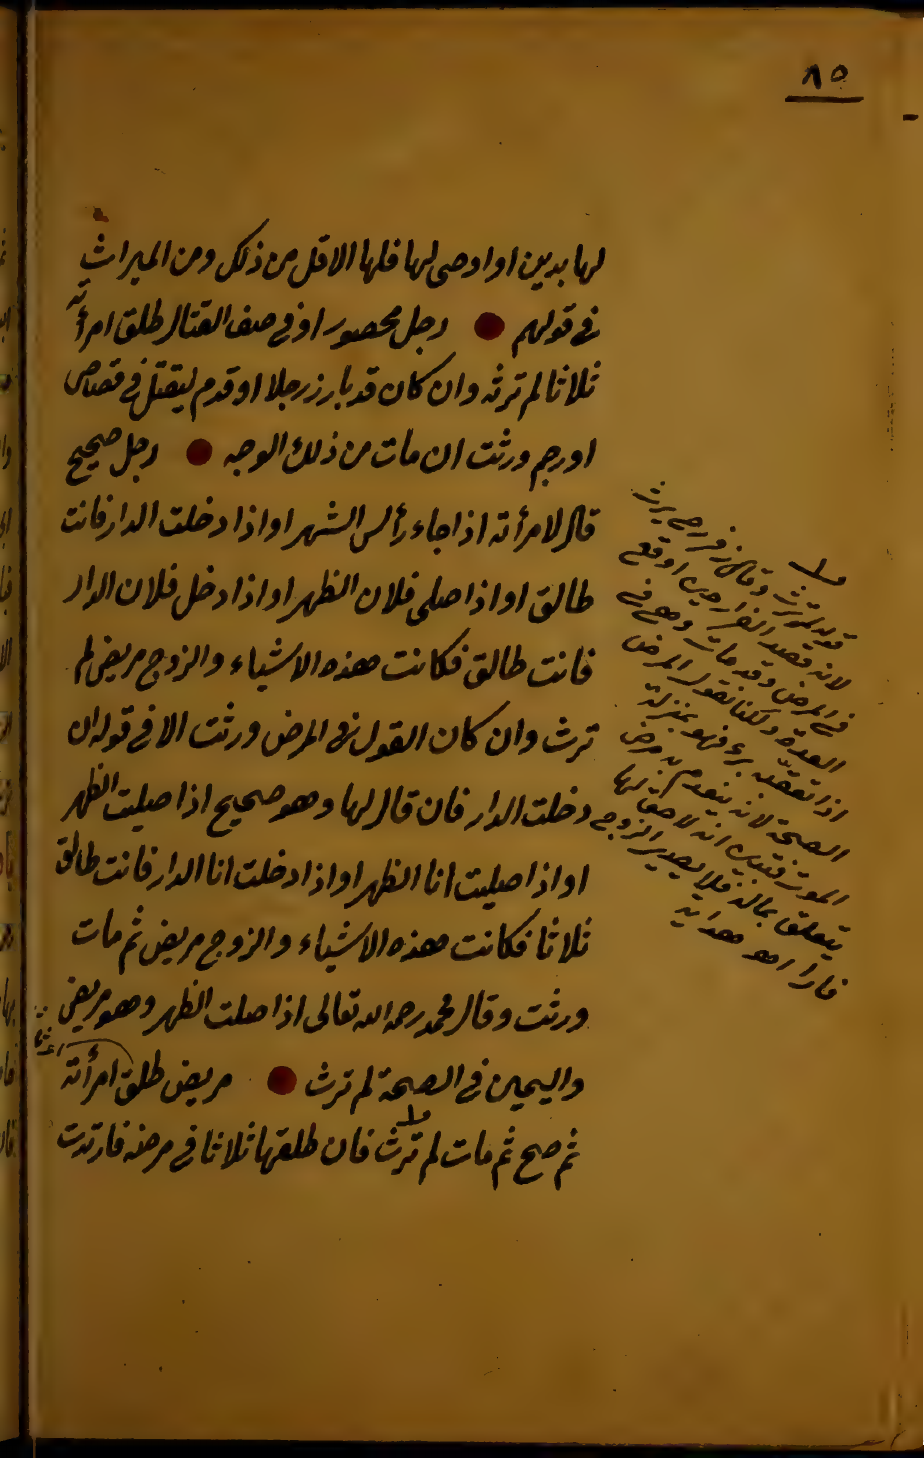 ٨٥
لها بدين او اوصى لها فلها الاقل من ذلك ومن الميراث
في قولهم رجل محصور او في صف القتال طلق امرأته
ثلاثا لم ترثه وان كان قد بارز رجلا او قدم ليقتل في قصاص
او رجم ورثت ان مات من ذلك الوجه رجل صحيح
قال لامرأته اذا جاء رأس الشهر او اذا دخلت الدار فانت
طالق او اذا صلى فلان الظهر او اذا دخل فلان الدار
فانت طالق فكانت هذه الاشياء والزوج مريض لم
ترث وان كان القول في المرض ورثت الا في قوله ان
دخلت الدار فان قال لها وهو صحيح اذا صليت الظهر
او اذا صليت انا الظهر او اذا دخلت انا الدار فانت طالق
ثلاثا فكانت هذه الاشياء والزوج مريض ثم مات
ورثت وقال محمد رحمه الله تعالى اذا صلت الظهر وهو مريض
واليمين في الصحة لم ترث مريض طلق امرأته
ثلاثا
ثم صح ثم مات لم ترث فان طلقها ثلاثا في مرضه فارتدت
قوله لم ترث وقال زفر رح يرث
لانه قصد الفرار حين اوقع
في المرض وقد مات وهي في
العدة ولكنا نقول المرض
اذا تعقبه برء فهو بمنزلة
الصحة لانه ينعدم به مرض
الموت فتبين انه لا حق لها
يتعلق بماله فلا يصير الزوج
فارا اهو هداية